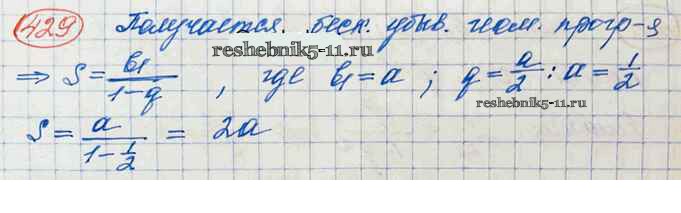 429 Получается беск. убыв. геом. прогр-я
reshebnik5-11.ru
⇒ S = b₁/(1-q) , где b₁ = a ; q = a/2 : a = 1/2
reshebnik5-11.ru
S = a/(1-1/2) = 2a